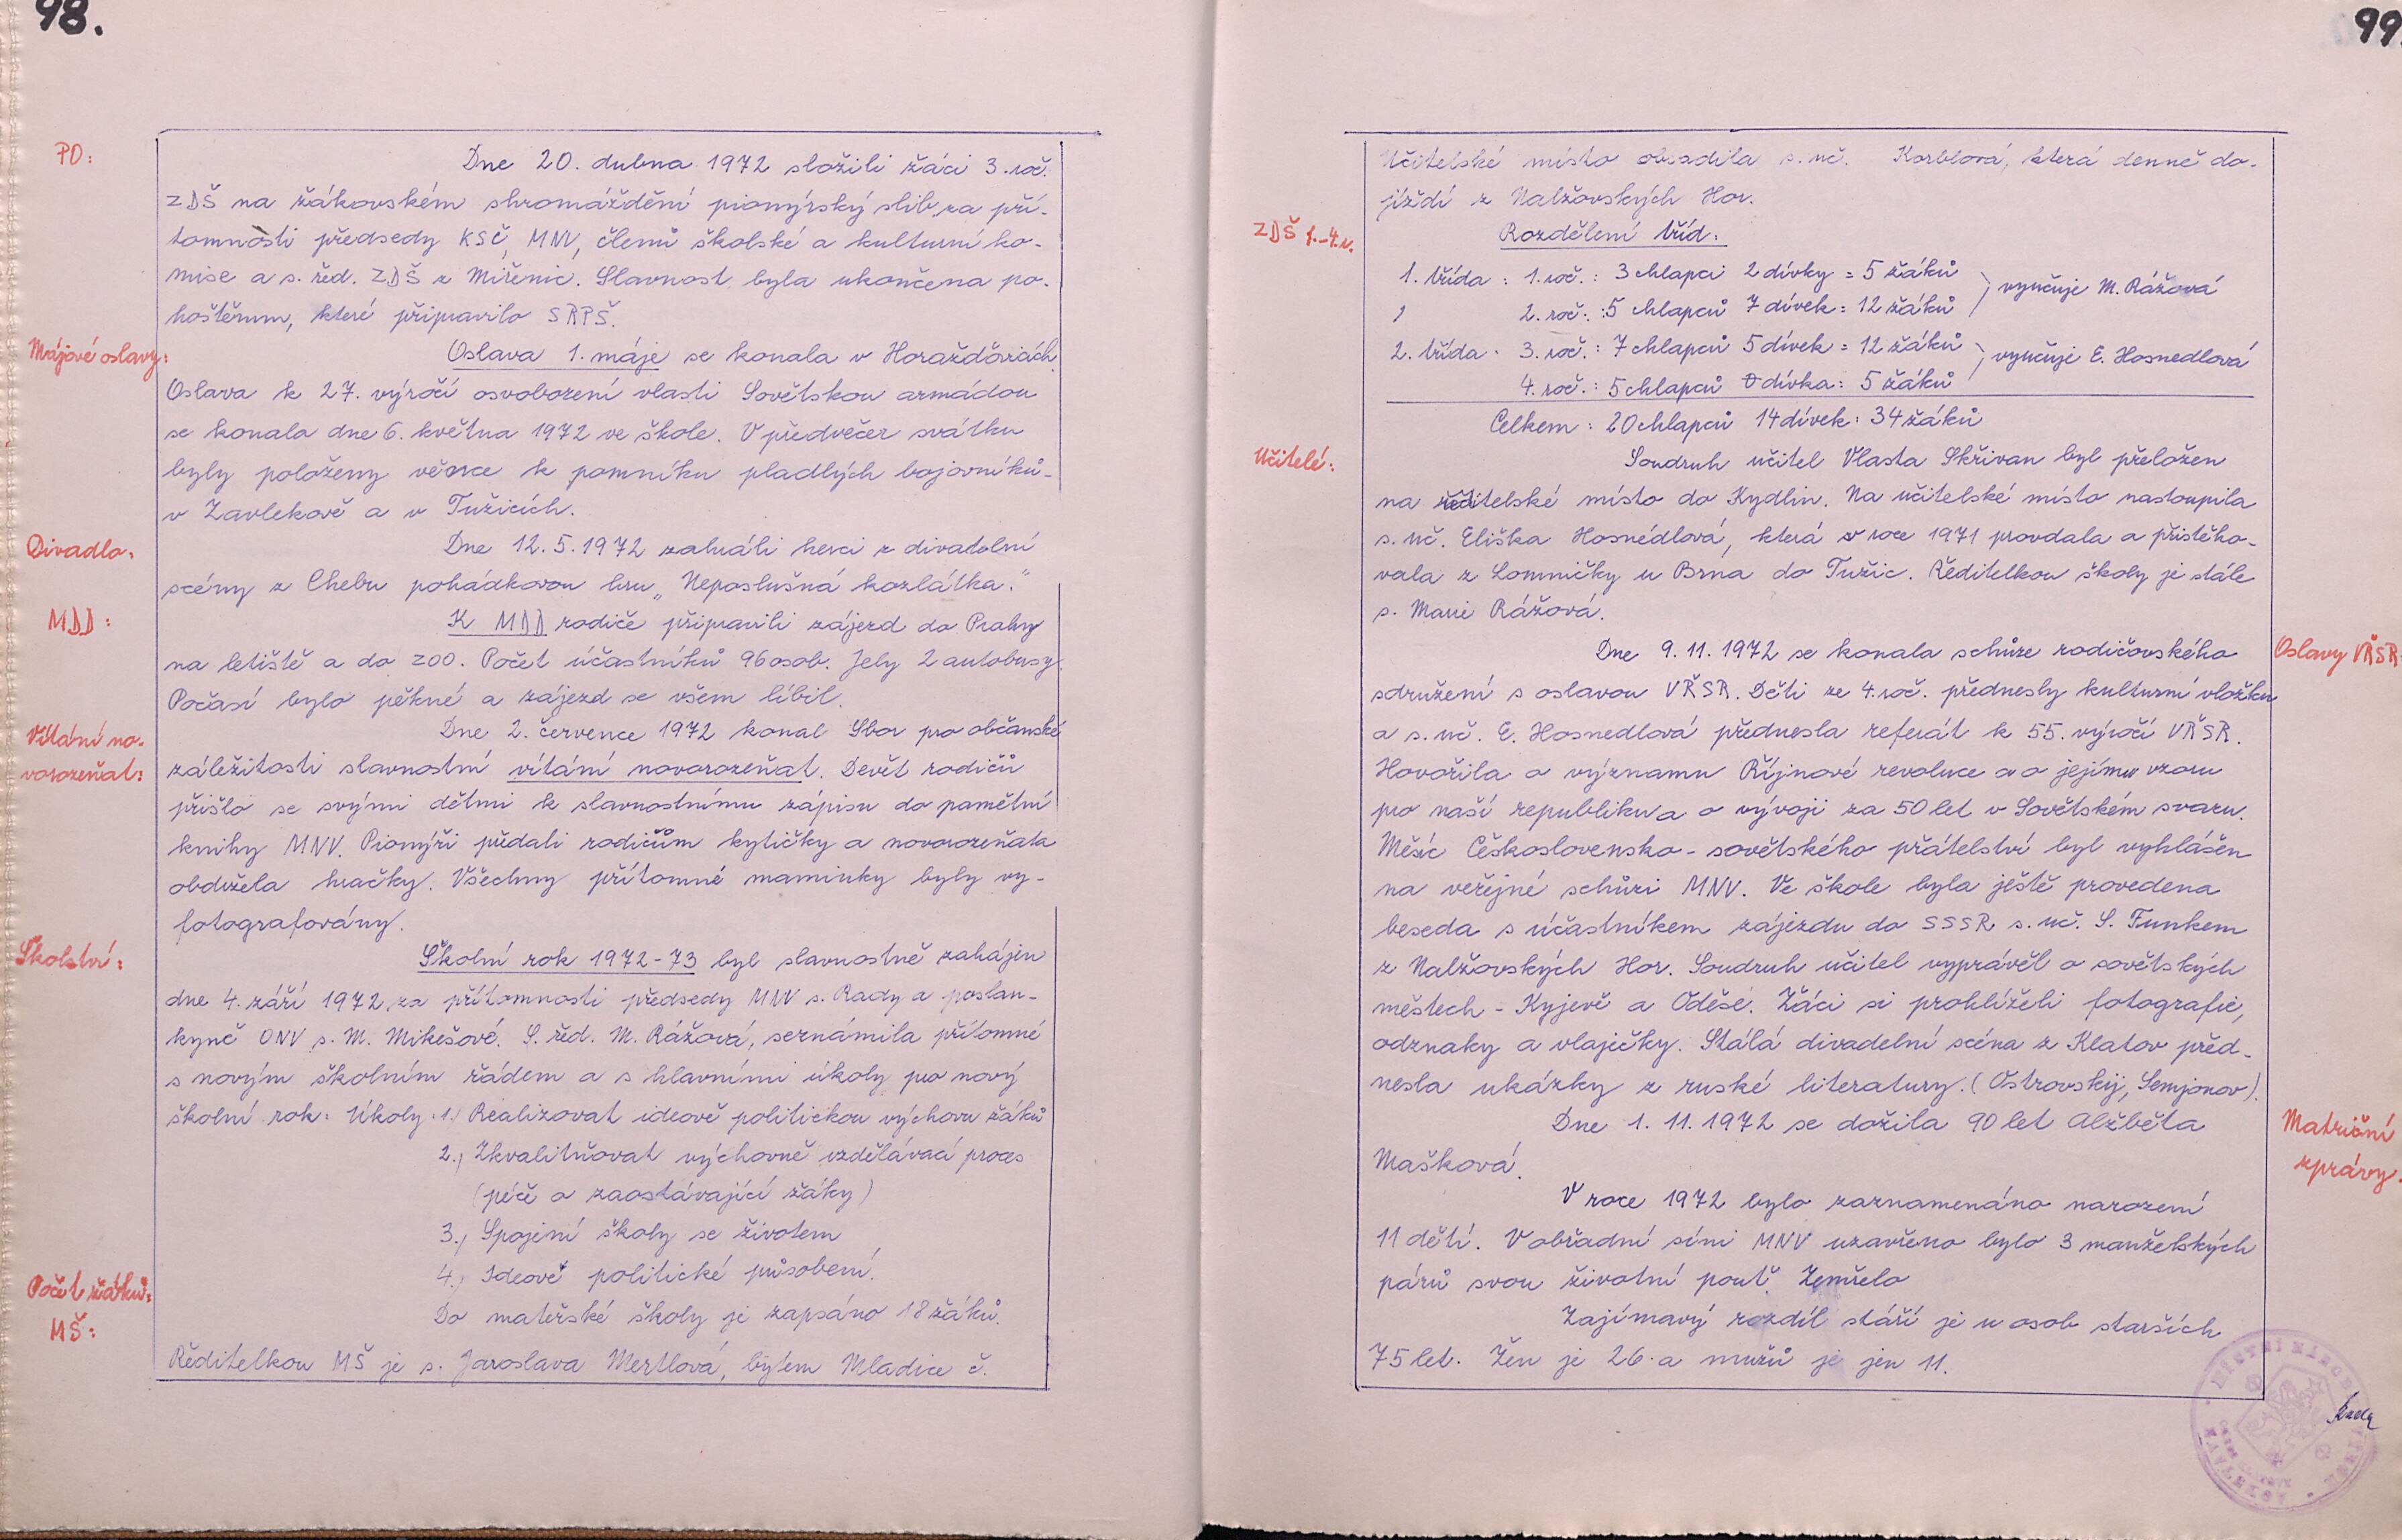 98.
PO:
Dne 20. dubna 1972 složili žáci 3. roč.
ZDŠ na žákovském shromáždění pionýrský slib za pří-
tomnosti předsedy KSČ, MNV, členů školské a kulturní ko-
mise a s. řed. ZDŠ z Miřenic. Slavnost byla ukončena po-
hoštěním, které připravilo SRPŠ.
Májové oslavy:
Oslava 1. máje se konala v Horažďovicích
Oslava k 27. výročí osvobození vlasti Sovětskou armádou
se konala dne 6. května 1972 ve škole. V předvečer svátku
byly položeny věnce k pomníku pladlých bojovníků-
v Zavlekově a v Tužicích.
Divadlo:
Dne 12. 5. 1972 zahráli herci z divadelní
scény z Chebu pohádkovou hru „Neposlušná kozlátka."
MDD:
K MDD rodiče připravili zájezd do Prahy
na letiště a do ZOO. Počet účastníků 96 osob. Jely 2 autobusy.
Počasí bylo pěkné a zájezd se všem líbil.
Vítání no-
vorozeňat:
Dne 2. července 1972 konal Sbor pro občanské
záležitosti slavnostní vítání novorozeňat. Devět rodičů
přišlo se svými dětmi k slavnostnímu zápisu do pamětní
knihy MNV. Pionýři předali rodičům kytičky a novorozeňata
obdržela hračky. Všechny přítomné maminky byly vy-
fotografovány.
Školství:
Školní rok 1972-73 byl slavnostně zahájen
dne 4. září 1972 za přítomnosti předsedy MNV s. Rady a poslan-
kyně ONV s. M. Mikešové. S. řed. M. Rážová, seznámila přítomné
s novým školním řádem a s hlavními úkoly pro nový
školní rok: Úkoly: 1.) Realizovat ideově politickou výchovu žáků
2.) Zkvalitňovat výchovně vzdělávací proces
(péče o zaostávající žáky)
3.) Spojení školy se životem
4.) Ideově politické působení.
Počet žáků:
MŠ:
Do mateřské školy je zapsáno 18 žáků.
Ředitelkou MŠ je s. Jaroslava Mertlová, bytem Mladice č.
99.
Učitelské místo obsadila s. uč. Korblová, která denně do-
jíždí z Nalžovských Hor.
ZDŠ 1.-4. r.
Rozdělení tříd:
1. třída: 1. roč.: 3 chlapci 2 dívky = 5 žáků
2. roč.: 5 chlapců 7 dívek = 12 žáků
vyučuje M. Rážová
2. třída: 3. roč.: 7 chlapců 5 dívek = 12 žáků
4. roč.: 5 chlapců 0 dívka: 5 žáků
vyučuje E. Hosnedlová
Celkem: 20 chlapců 14 dívek: 34 žáků
Učitelé:
Soudruh učitel Vlasta Skřivan byl přeložen
na ředitelské místo do Kydlin. Na učitelské místo nastoupila
s. uč. Eliška Hosnédlová, která v roce 1971 provdala a přistěho-
vala z Lomničky u Brna do Tužic. Ředitelkou školy je stále
s. Marie Rážová.
Oslavy VŘSR
Dne 9. 11. 1972 se konala schůze rodičovského
sdružení s oslavou VŘSR. Děti ze 4. roč. přednesly kulturní vložku
a s. uč. E. Hosnedlová přednesla referát k 55. výročí VŘSR.
Hovořila o významu Říjnové revoluce a o jejímu vzoru
pro naší republiku a o vývoji za 50 let v Sovětském svazu.
Měsíc Československo-sovětského přátelství byl vyhlášěn
na veřejné schůzi MNV. Ve škole byla ještě provedena
beseda s účastníkem zájezdu do SSSR s. uč. S. Funkem
z Nalžovských Hor. Soudruh učitel vyprávěl o sovětských
městech - Kyjevě a Oděse. Žáci si prohlíželi fotografie,
odznaky a vlaječky. Stálá divadelní scéna z Klatov před-
nesla ukázky z ruské literatury. (Ostrovskij, Semjonov).
Matriční
zprávy.
Dne 1. 11. 1972 se dožila 90 let Alžběta
Mašková.
V roce 1972 bylo zaznamenáno narození
11 dětí. V obřadní síni MNV uzavřeno bylo 3 manželských
párů svou životní pouť. Zemřelo
Zajímavý rozdíl stáří je u osob starších
75 let. Žen je 26 a mužů je jen 11.
Rada